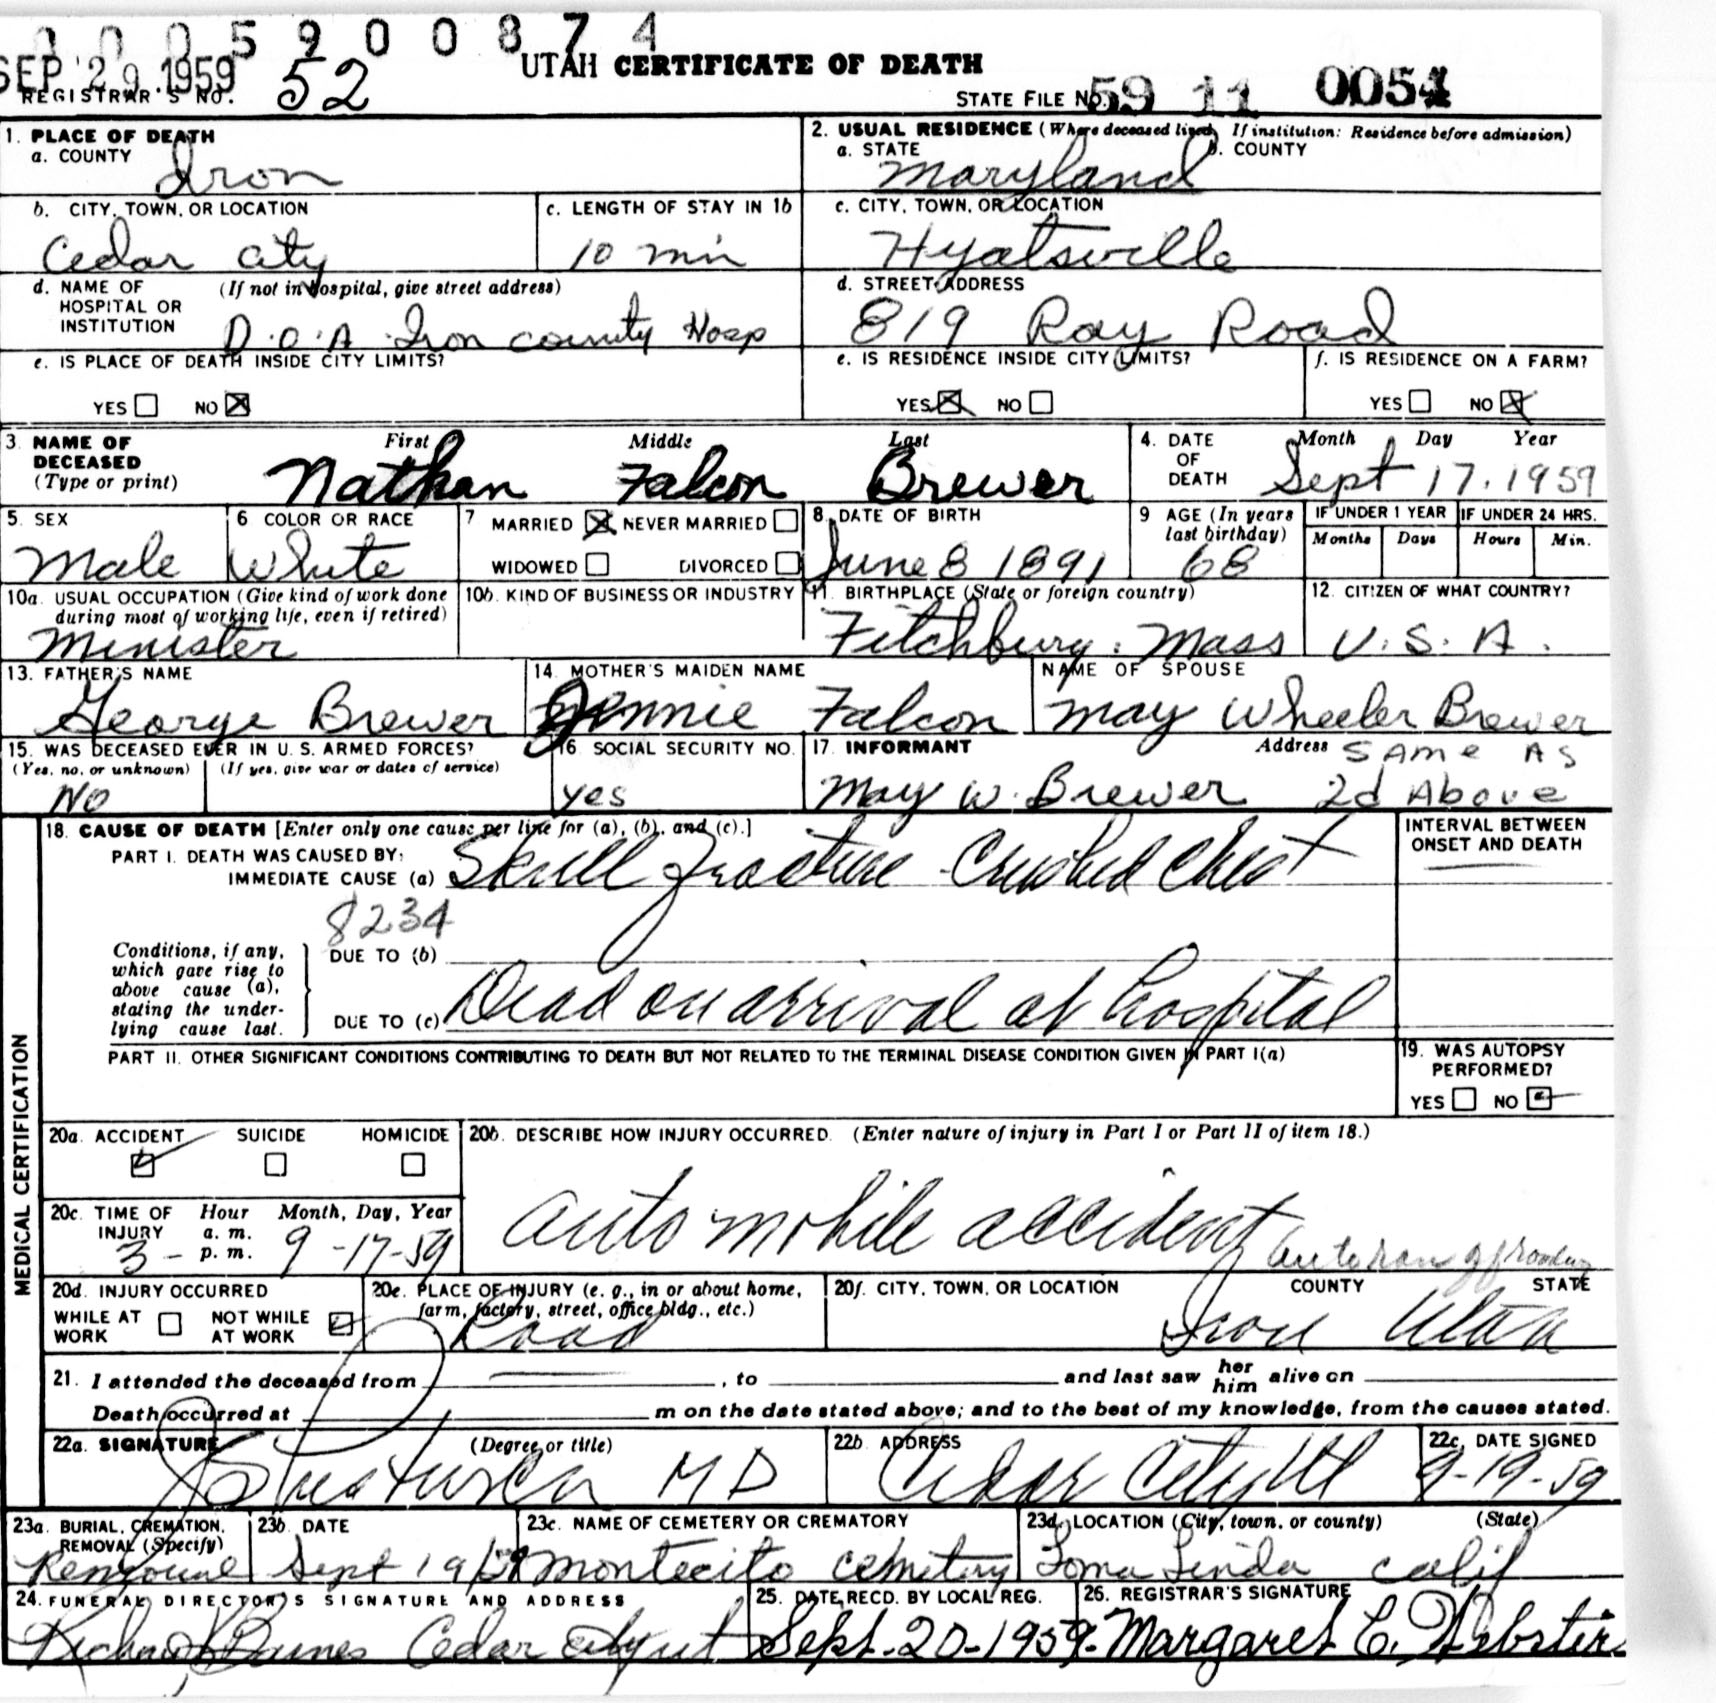 1 0 0 5 9 0 0 8 7 4
SEP 29 1959
UTAH CERTIFICATE OF DEATH
REGISTRAR'S NO. 52
STATE FILE NO. 59 11 0054
1. PLACE OF DEATH
a. COUNTY
Iron
2. USUAL RESIDENCE (Where deceased lived. If institution: Residence before admission)
a. STATE b. COUNTY
Maryland
b. CITY, TOWN, OR LOCATION
Cedar City
c. LENGTH OF STAY IN 1b
10 min
c. CITY, TOWN, OR LOCATION
Hyatsville
d. NAME OF HOSPITAL OR INSTITUTION (If not in hospital, give street address)
D.O.A Iron county Hosp
d. STREET ADDRESS
819 Ray Road
e. IS PLACE OF DEATH INSIDE CITY LIMITS?
YES NO X
e. IS RESIDENCE INSIDE CITY LIMITS?
YES X NO
f. IS RESIDENCE ON A FARM?
YES NO X
3. NAME OF DECEASED (Type or print)
First Middle Last
Nathan Falcon Brewer
4. DATE OF DEATH
Month Day Year
Sept 17, 1959
5. SEX
Male
6 COLOR OR RACE
White
7 MARRIED X NEVER MARRIED
WIDOWED DIVORCED
8. DATE OF BIRTH
June 8 1891
9 AGE (In years last birthday)
68
IF UNDER 1 YEAR IF UNDER 24 HRS.
Months Days Hours Min.
10a. USUAL OCCUPATION (Give kind of work done during most of working life, even if retired)
Minister
10b. KIND OF BUSINESS OR INDUSTRY
11. BIRTHPLACE (State or foreign country)
Fitchburg. Mass
12. CITIZEN OF WHAT COUNTRY?
U.S.A.
13. FATHER'S NAME
George Brewer
14. MOTHER'S MAIDEN NAME
Jennie Falcon
NAME OF SPOUSE
May Wheeler Brewer
15. WAS DECEASED EVER IN U.S. ARMED FORCES?
(Yes, no, or unknown) (If yes, give war or dates of service)
No
16. SOCIAL SECURITY NO.
yes
17. INFORMANT Address
May W. Brewer SAME AS 2d Above
MEDICAL CERTIFICATION
18. CAUSE OF DEATH [Enter only one cause per line for (a), (b), and (c).]
PART I. DEATH WAS CAUSED BY:
IMMEDIATE CAUSE (a) Skull fracture - Crushed Chest
INTERVAL BETWEEN ONSET AND DEATH
8234
Conditions, if any, which gave rise to above cause (a), stating the underlying cause last.
DUE TO (b)
DUE TO (c) Dead on arrival at hospital
PART II. OTHER SIGNIFICANT CONDITIONS CONTRIBUTING TO DEATH BUT NOT RELATED TO THE TERMINAL DISEASE CONDITION GIVEN IN PART I(a)
19. WAS AUTOPSY PERFORMED?
YES NO
20a. ACCIDENT SUICIDE HOMICIDE
20b. DESCRIBE HOW INJURY OCCURRED. (Enter nature of injury in Part I or Part II of item 18.)
automobile accident
auto ran off roadway
20c. TIME OF INJURY
Hour Month, Day, Year
a. m.
p. m.
3 - 9-17-59
20d. INJURY OCCURRED
WHILE AT WORK NOT WHILE AT WORK
20e. PLACE OF INJURY (e. g., in or about home, farm, factory, street, office bldg., etc.)
Road
20f. CITY, TOWN, OR LOCATION COUNTY STATE
Iron Utah
21. I attended the deceased from , to and last saw her him alive on
Death occurred at m on the date stated above; and to the best of my knowledge, from the causes stated.
22a. SIGNATURE (Degree or title)
M D
22b. ADDRESS
Cedar City Ut
22c. DATE SIGNED
9-19-59
23a. BURIAL, CREMATION, REMOVAL (Specify)
Removal
23b. DATE
Sept 19/59
23c. NAME OF CEMETERY OR CREMATORY
Montecito Cemetery
23d. LOCATION (City, town, or county) (State)
Loma Linda Calif
24. FUNERAL DIRECTOR'S SIGNATURE AND ADDRESS
Cedar City Ut
25. DATE RECD. BY LOCAL REG.
Sept. 20-1959.
26. REGISTRAR'S SIGNATURE
Margaret C. Webster